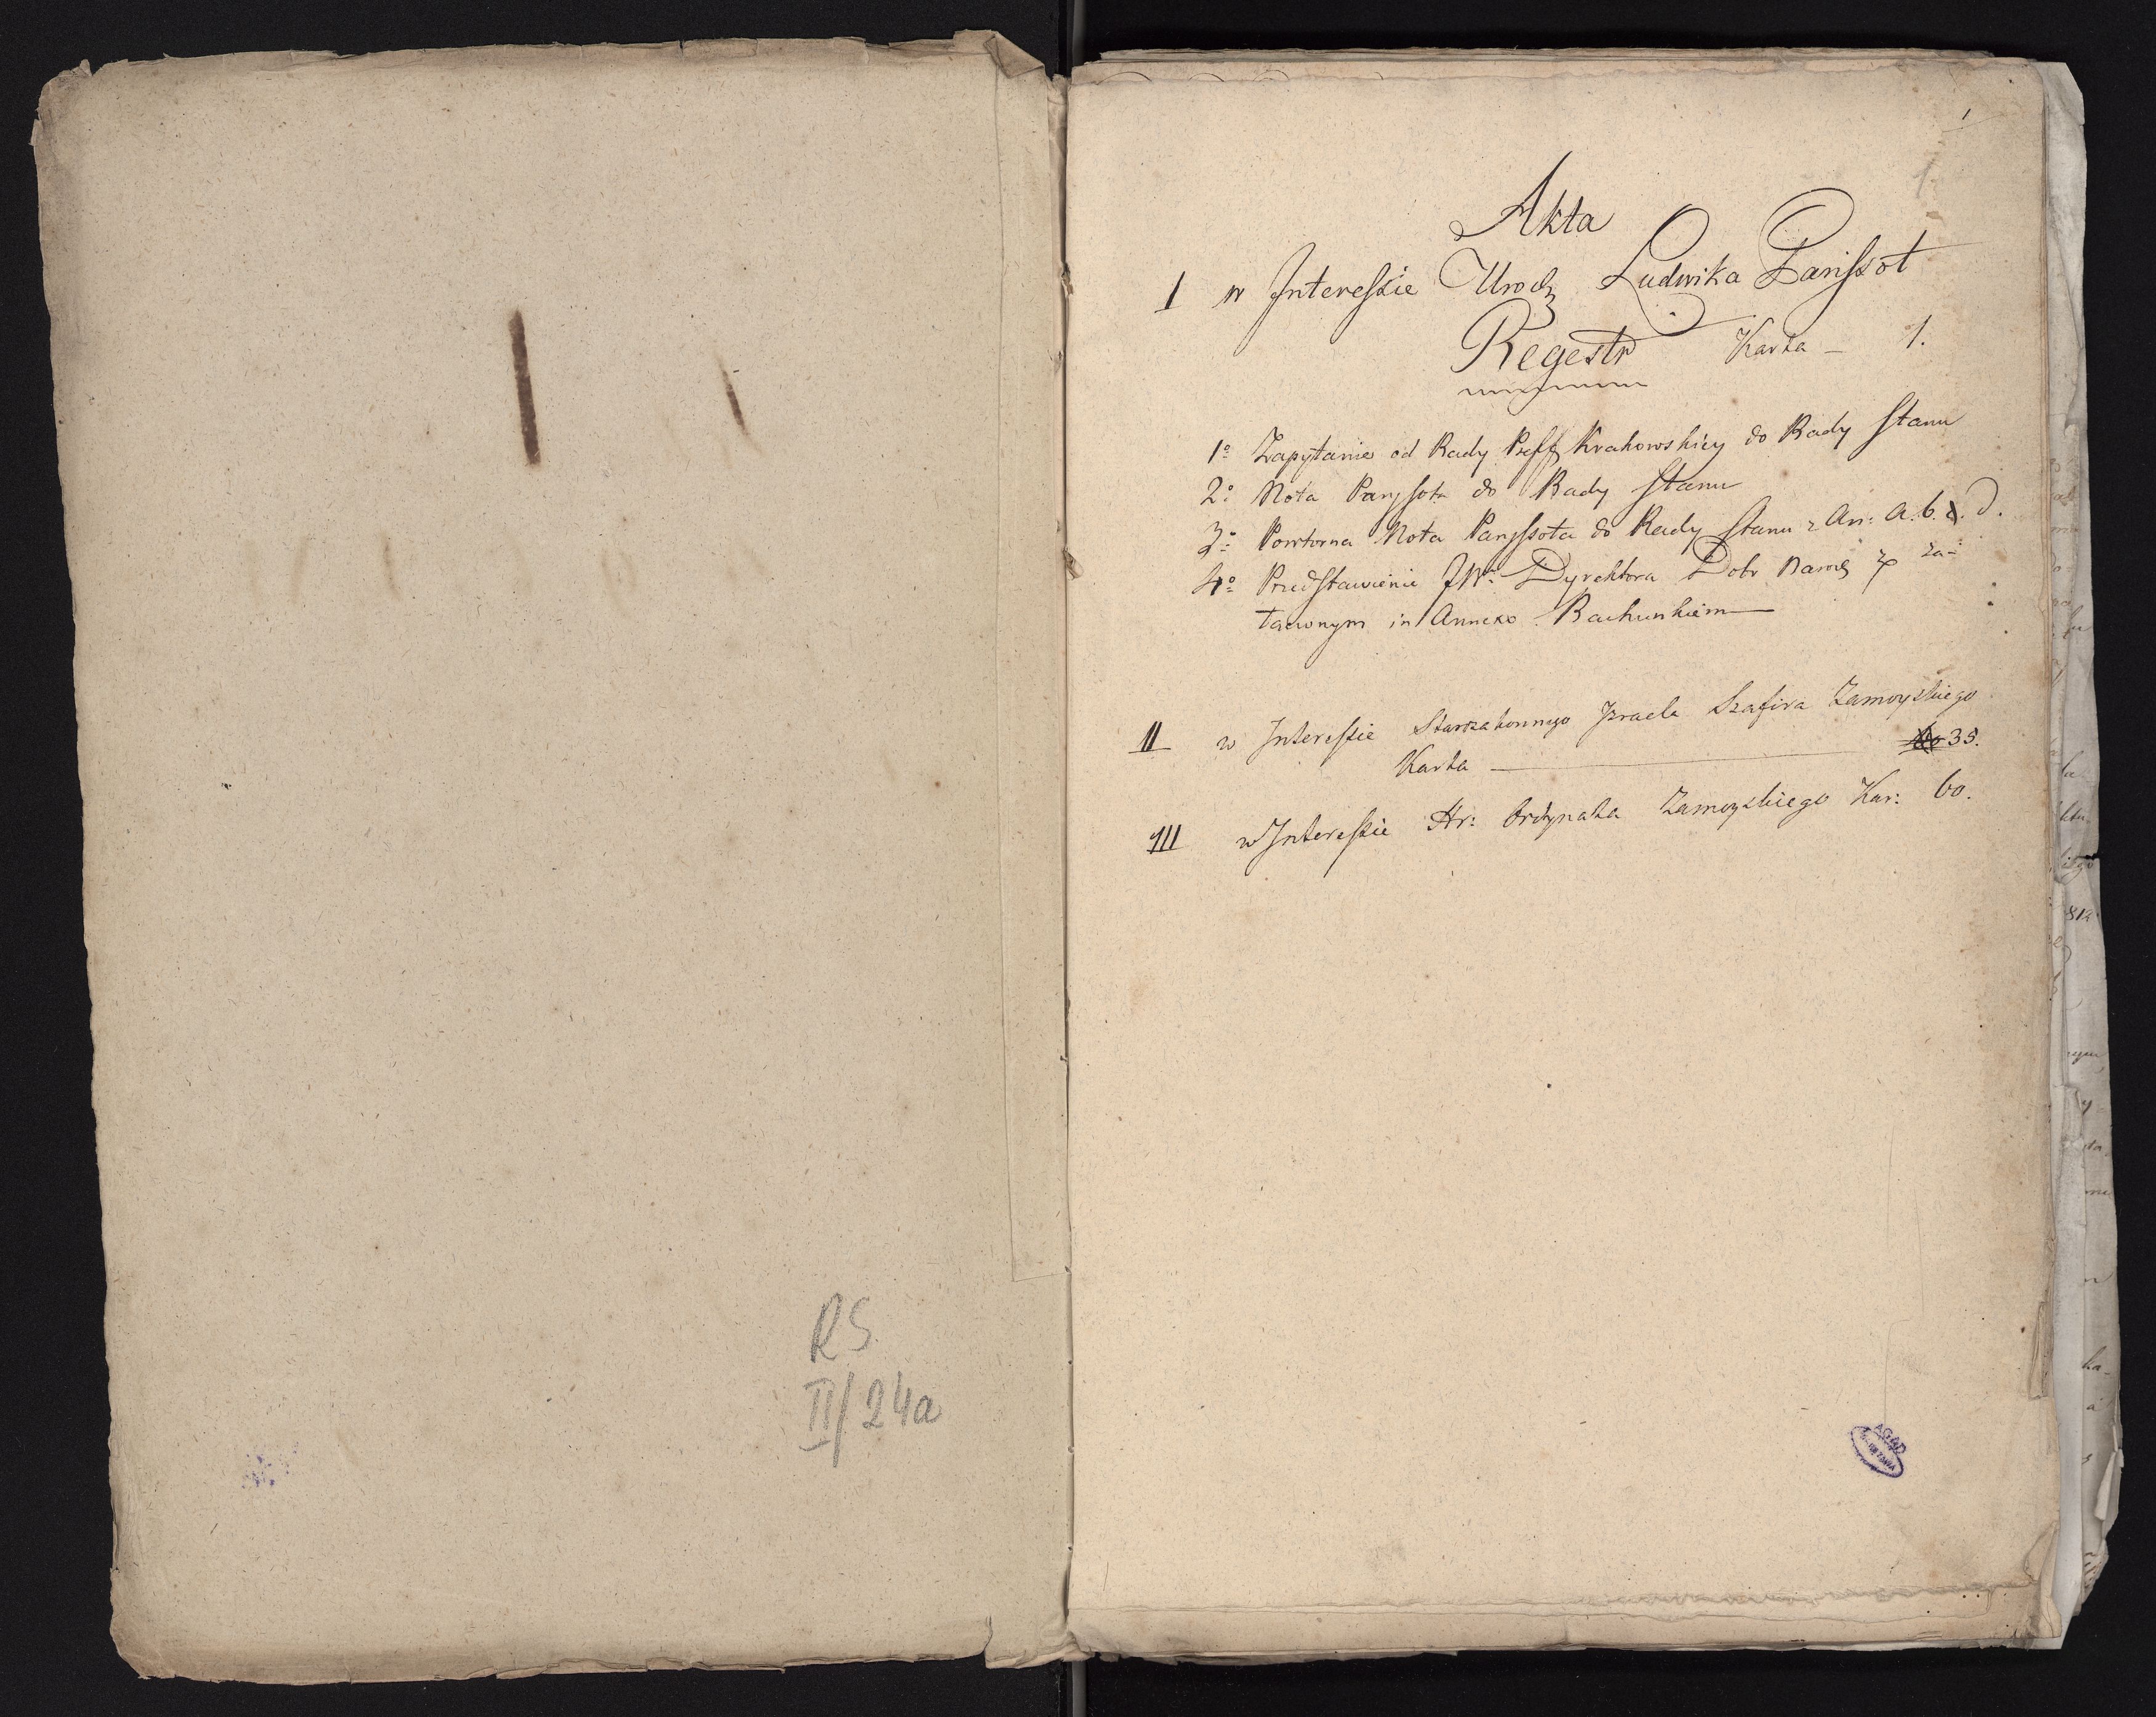 RS
II/24a
1
1.
Akta
I w Interessie Urodz Ludwika Parissot
Regestr Karta – 1.
1o Zapytanie od Rady Preff Krakowskiey do Rady Stanu
2o Nota Paryssota do Rady Stanu
3o Powtorna Nota Paryssota do Rady Stanu z An: A. b. c. d.
4o Przedstawienie JW: Dyrektora Dobr Narod z za-
łączonym in Annexo Rachunkiem
II w Interessie Starozakonnego Izraela Szafira Zamoyskiego
Karta 35.
III w Interessie Hr: Ordynata Zamoyskiego Kar: 60.
AGAD